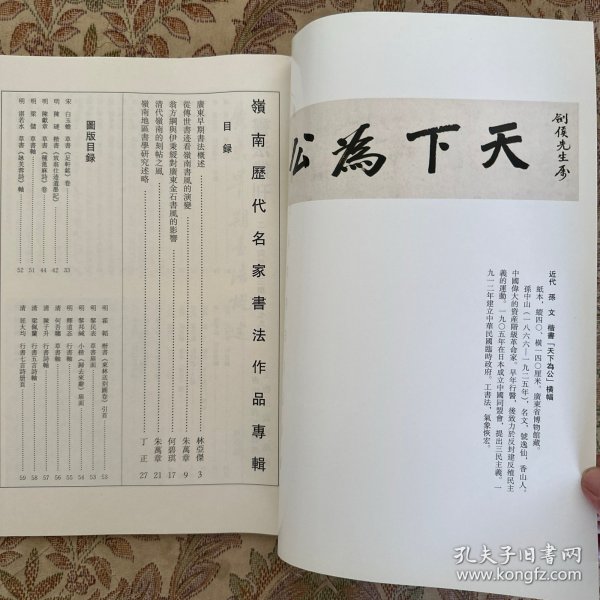 劍侯先生屬
天下為公
近代 孫文 楷書「天下為公」橫幅
紙本，縱四〇、橫一四〇厘米。廣東省博物館藏。
孫中山（一八六六—一九二五年），名文，號逸仙，香山人。
中國偉大的資產階級革命家。早年行醫，後致力於反封建反殖民主
義的運動。一九〇五年在日本成立中國同盟會，提出三民主義。一
九一二年建立中華民國臨時政府。工書法，氣象恢宏。
嶺南歷代名家書法作品專輯
目錄
廣東早期書法概述 林亞傑 3
從傳世書迹看嶺南書風的演變 朱萬章 9
翁方綱與伊秉綬對廣東金石書風的影響 何碧琪 17
清代嶺南的刻帖之風 朱萬章 21
嶺南地區書學研究述略 丁正 27
圖版目錄
宋 白玉蟾 草書《足軒銘》卷 33
明 陳璉 楷書 42
明 陳獻章 草書《種蓖麻詩》卷 44
明 梁儲 草書軸 51
明 湛若水 草書 軸 52
明 霍韜 楷書 引首 53
明 黎民表 草書扇面 53
明 黎邦瑊 小楷《歸去來辭》扇面 54
明 行書軸 55
清 何吾騶 草書軸 56
清 陳子升 行書詩軸 57
清 梁佩蘭 行書五言詩軸 58
清 屈大均 行書七言詩冊頁 59
孔夫子旧书网
www.kongfz.com